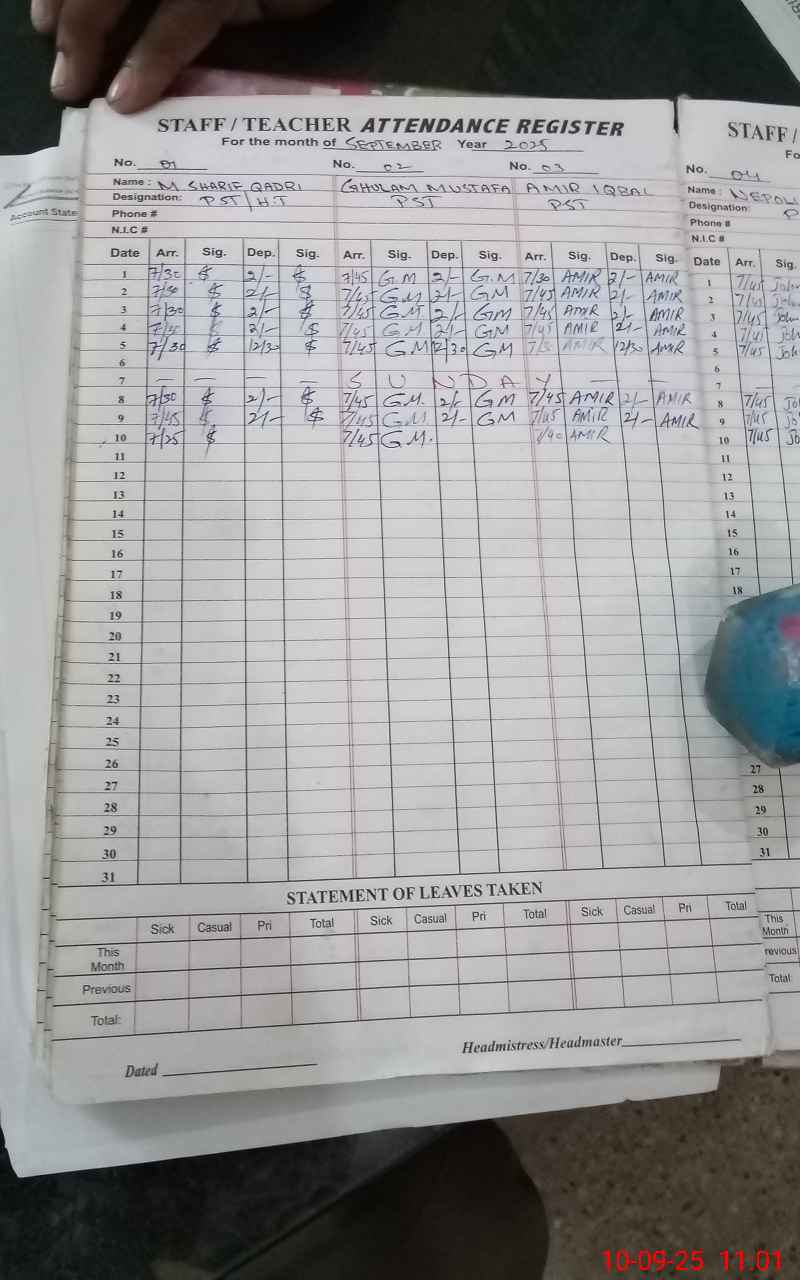 STAFF / TEACHER ATTENDANCE REGISTER
For the month of SEPTEMBER Year 2025
No. 01 No. 02 No. 03
Name : M SHARIF QADRI GHULAM MUSTAFA AMIR IQBAL
Designation: PST / H.T PST PST
Phone #
N.I.C #
Date Arr. Sig. Dep. Sig. Arr. Sig. Dep. Sig. Arr. Sig. Dep. Sig.
1 7/30 $ 2/- $ 7/45 G M 2/- G.M 7/30 AMIR 2/- AMIR
2 7/30 $ 2/- $ 7/45 G.M 2/- GM 7/45 AMIR 2/- AMIR
3 7/30 $ 2/- $ 7/45 G.M 2/- GM 7/45 AMIR 2/- AMIR
4 $ 2/- $ 7/45 G.M 2/- GM 7/45 AMIR 2/- AMIR
5 7/30 $ 12/30 $ 7/45 G.M 12/30 GM AMIR 12/30 AMIR
6
7 — — — — S U N D A Y — —
8 7/30 $ 2/- $ 7/45 G.M. 2/- GM 7/45 AMIR 2/- AMIR
9 7/45 $ 2/- $ 7/45 G.M. 2/- GM 7/45 AMIR 2/- AMIR
10 7/25 $ 7/45 G.M. 7/40 AMIR
11
12
13
14
15
16
17
18
19
20
21
22
23
24
25
26
27
28
29
30
31
STATEMENT OF LEAVES TAKEN
Sick Casual Pri Total Sick Casual Pri Total Sick Casual Pri Total
This Month
Previous
Total:
Dated Headmistress/Headmaster
STAFF /
Fo
No. 04
Name : NEPOL
Designation: P
Phone #
N.I.C #
Date Arr. Sig.
1 7/45 John
2 7/45 John
3 7/45 John
4 Joh
5 7/45 Joh
6
7 —
8 7/45 Jo
9 7/45 Jo
10 7/45 Jo
11
12
13
14
15
16
17
18
27
28
29
30
31
This
Month
revious
Total:
Account State
10-09-25 11.01